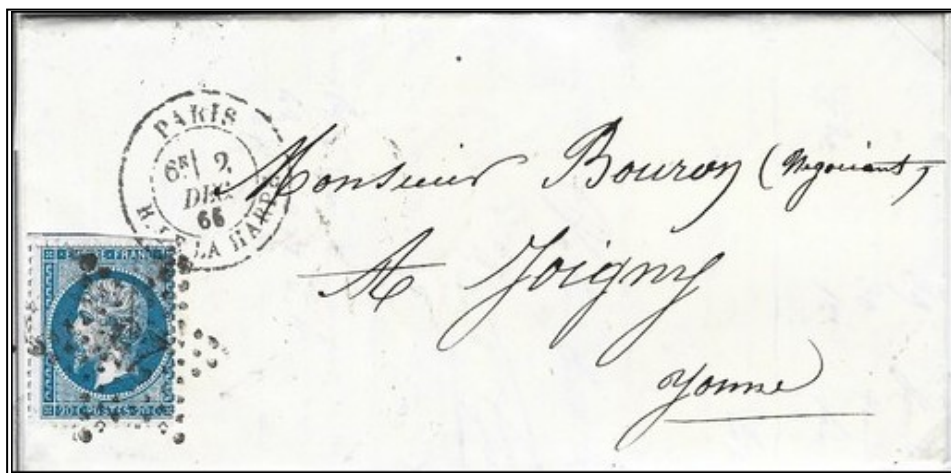 PARIS
6E 2
DEC
66
R. DE LA HARPE
Monsieur Bouron (Negociant)
A Joigny
Yonne
EMPIRE FRANC
20 C POSTES 20 C